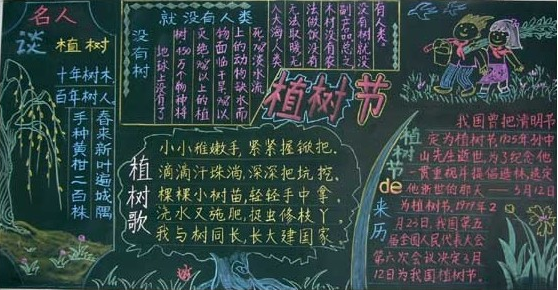 名人
谈 植树
十年树木
百年树人
手种黄柑二百株
春来新叶遍城隅
没有树
就没有人类
地球上没有了
树450万个物种将
灭绝
以上的植
物面临干旱
上的动物缺水而
死
淡水流
入大海人类
无法取暖无
法做饭没有
木材没有农
副产品总之
没有树就没
有人类。
植树节
植树歌
小小稚嫩手，紧紧握锹把，
滴滴汗珠淌，深深把坑挖，
棵棵小树苗，轻轻手中拿，
浇水又施肥，捉虫修枝丫，
我与树同长，长大建国家
植树节de来历
我国曾把清明节
定为植树节。1925年孙中
山先生逝世，为了纪念他
一贯重视并提倡造林，选定
他逝世的那天——3月12日
为植树节。1979年2
月23日，我国第五
届全国人民代表大会
第六次会议决定3月
12日为我国植树节。